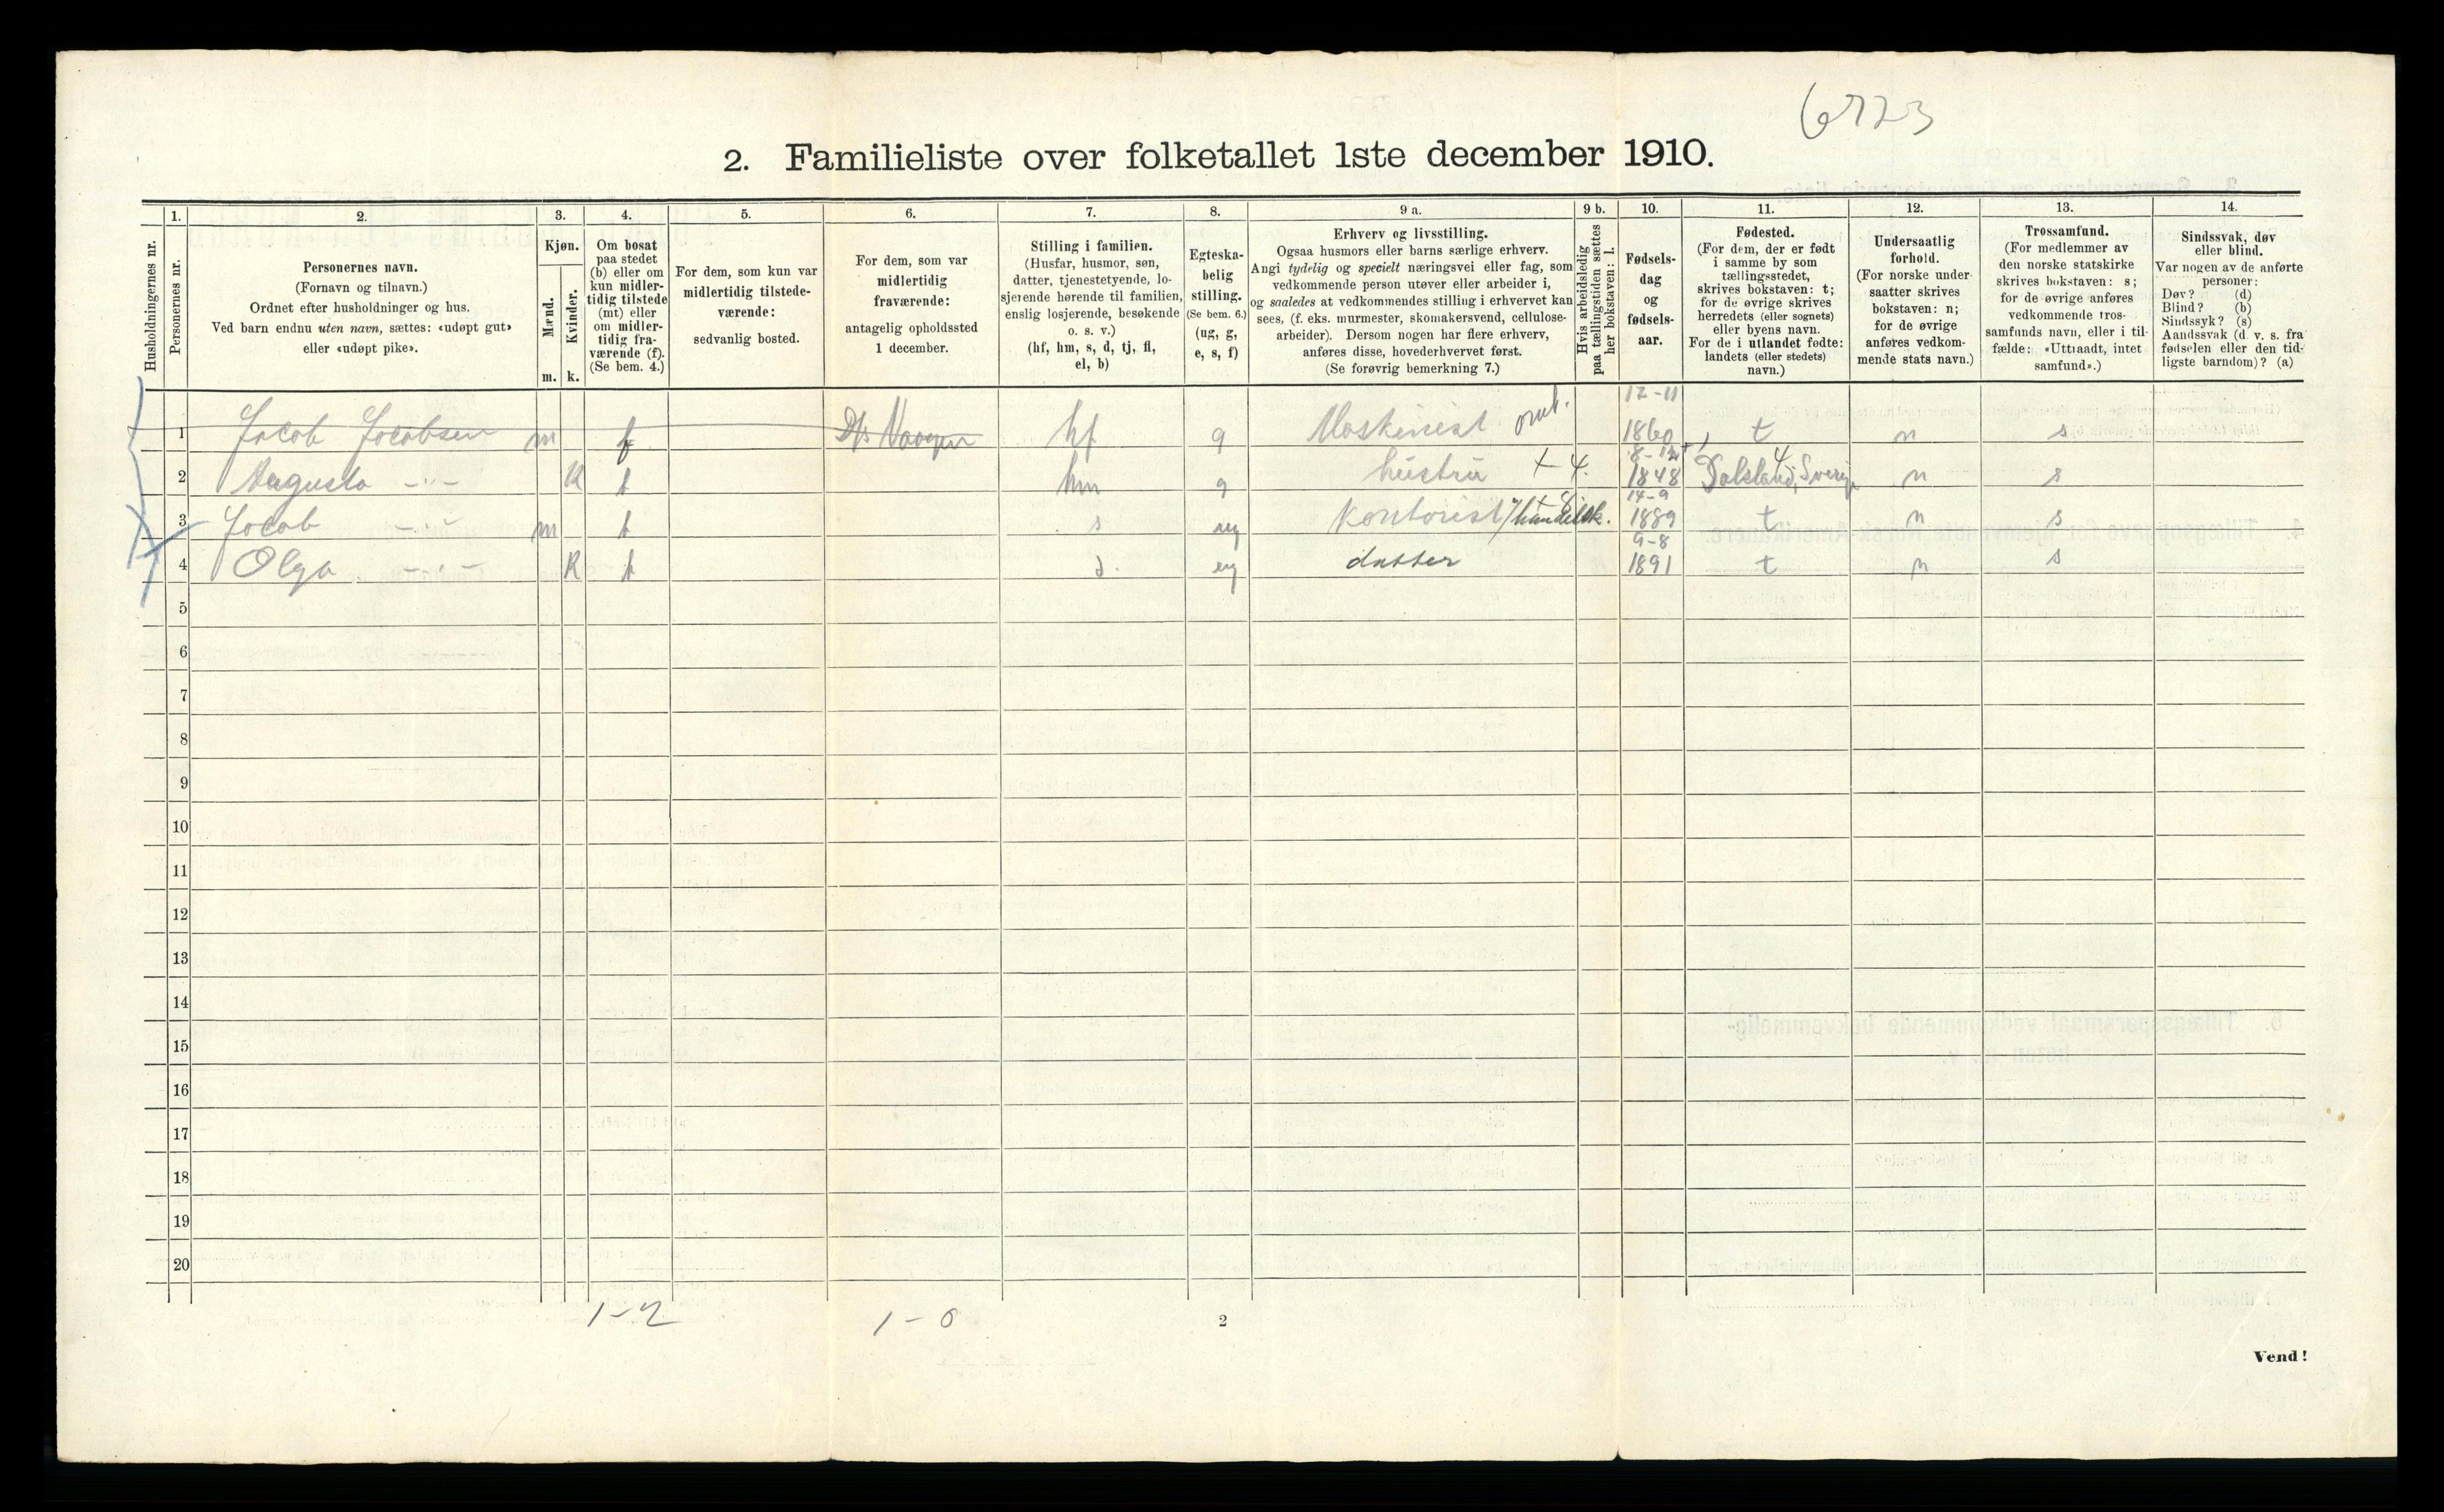 6723
2. Familieliste over folketallet 1ste december 1910.
Husholdningernes nr.
1. Personernes nr.
2. Personernes navn.
(Fornavn og tilnavn.)
Ordnet efter husholdninger og hus.
Ved barn endnu uten navn, sættes: «udøpt gut»
eller «udøpt pike».
3. Kjøn.
Mænd. m.
Kvinder. k.
4. Om bosat
paa stedet
(b) eller om
kun midler-
tidig tilstede
(mt) eller
om midler-
tidig fra-
værende (f).
(Se bem. 4.)
5. For dem, som kun var
midlertidig tilstede-
værende:
sedvanlig bosted.
6. For dem, som var
midlertidig
fraværende:
antagelig opholdssted
1 december.
7. Stilling i familien.
(Husfar, husmor, søn,
datter, tjenestetyende, lo-
sjerende hørende til familien,
enslig losjerende, besøkende
o. s. v.)
(hf, hm, s, d, tj, fl,
el, b)
8. Egteska-
belig
stilling.
(Se bem. 6.)
(ug, g,
e, s, f)
9 a. Erhverv og livsstilling.
Ogsaa husmors eller barns særlige erhverv.
Angi tydelig og specielt næringsvei eller fag, som
vedkommende person utøver eller arbeider i,
og saaledes at vedkommendes stilling i erhvervet kan
sees, (f. eks. murmester, skomakersvend, cellulose-
arbeider). Dersom nogen har flere erhverv,
anføres disse, hovederhvervet først.
(Se forøvrig bemerkning 7.)
9 b. Hvis arbeidsledig
paa tællingstiden sættes
her bokstaven: l.
10. Fødsels-
dag
og
fødsels-
aar.
11. Fødested.
(For dem, der er født
i samme by som
tællingsstedet,
skrives bokstaven: t;
for de øvrige skrives
herredets (eller sognets)
eller byens navn.
For de i utlandet fødte:
landets (eller stedets)
navn.)
12. Undersaatlig
forhold.
(For norske under-
saatter skrives
bokstaven: n;
for de øvrige
anføres vedkom-
mende stats navn.)
13. Trossamfund.
(For medlemmer av
den norske statskirke
skrives bokstaven: s;
for de øvrige anføres
vedkommende tros-
samfunds navn, eller i til-
fælde: «Uttraadt, intet
samfund».)
14. Sindssvak, døv
eller blind.
Var nogen av de anførte
personer:
Døv? (d)
Blind? (b)
Sindssyk? (s)
Aandssvak (d. v. s. fra
fødselen eller den tid-
ligste barndom)? (a)
1 Jacob Jacobsen m f hf g Maskinist 12-11 1860 t n s
2 Augusta -"- K b hm g hustru + 4. 8-12 1848 Dalsland, Sverige n s
3 Jacob -"- m b s ug Kontorist 14-9 1889 t n s
4 Olga -"- K b d. ug datter 9-8 1891 t n s
5
6
7
8
9
10
11
12
13
14
15
16
17
18
19
20
1-2 1-0
2
Vend!